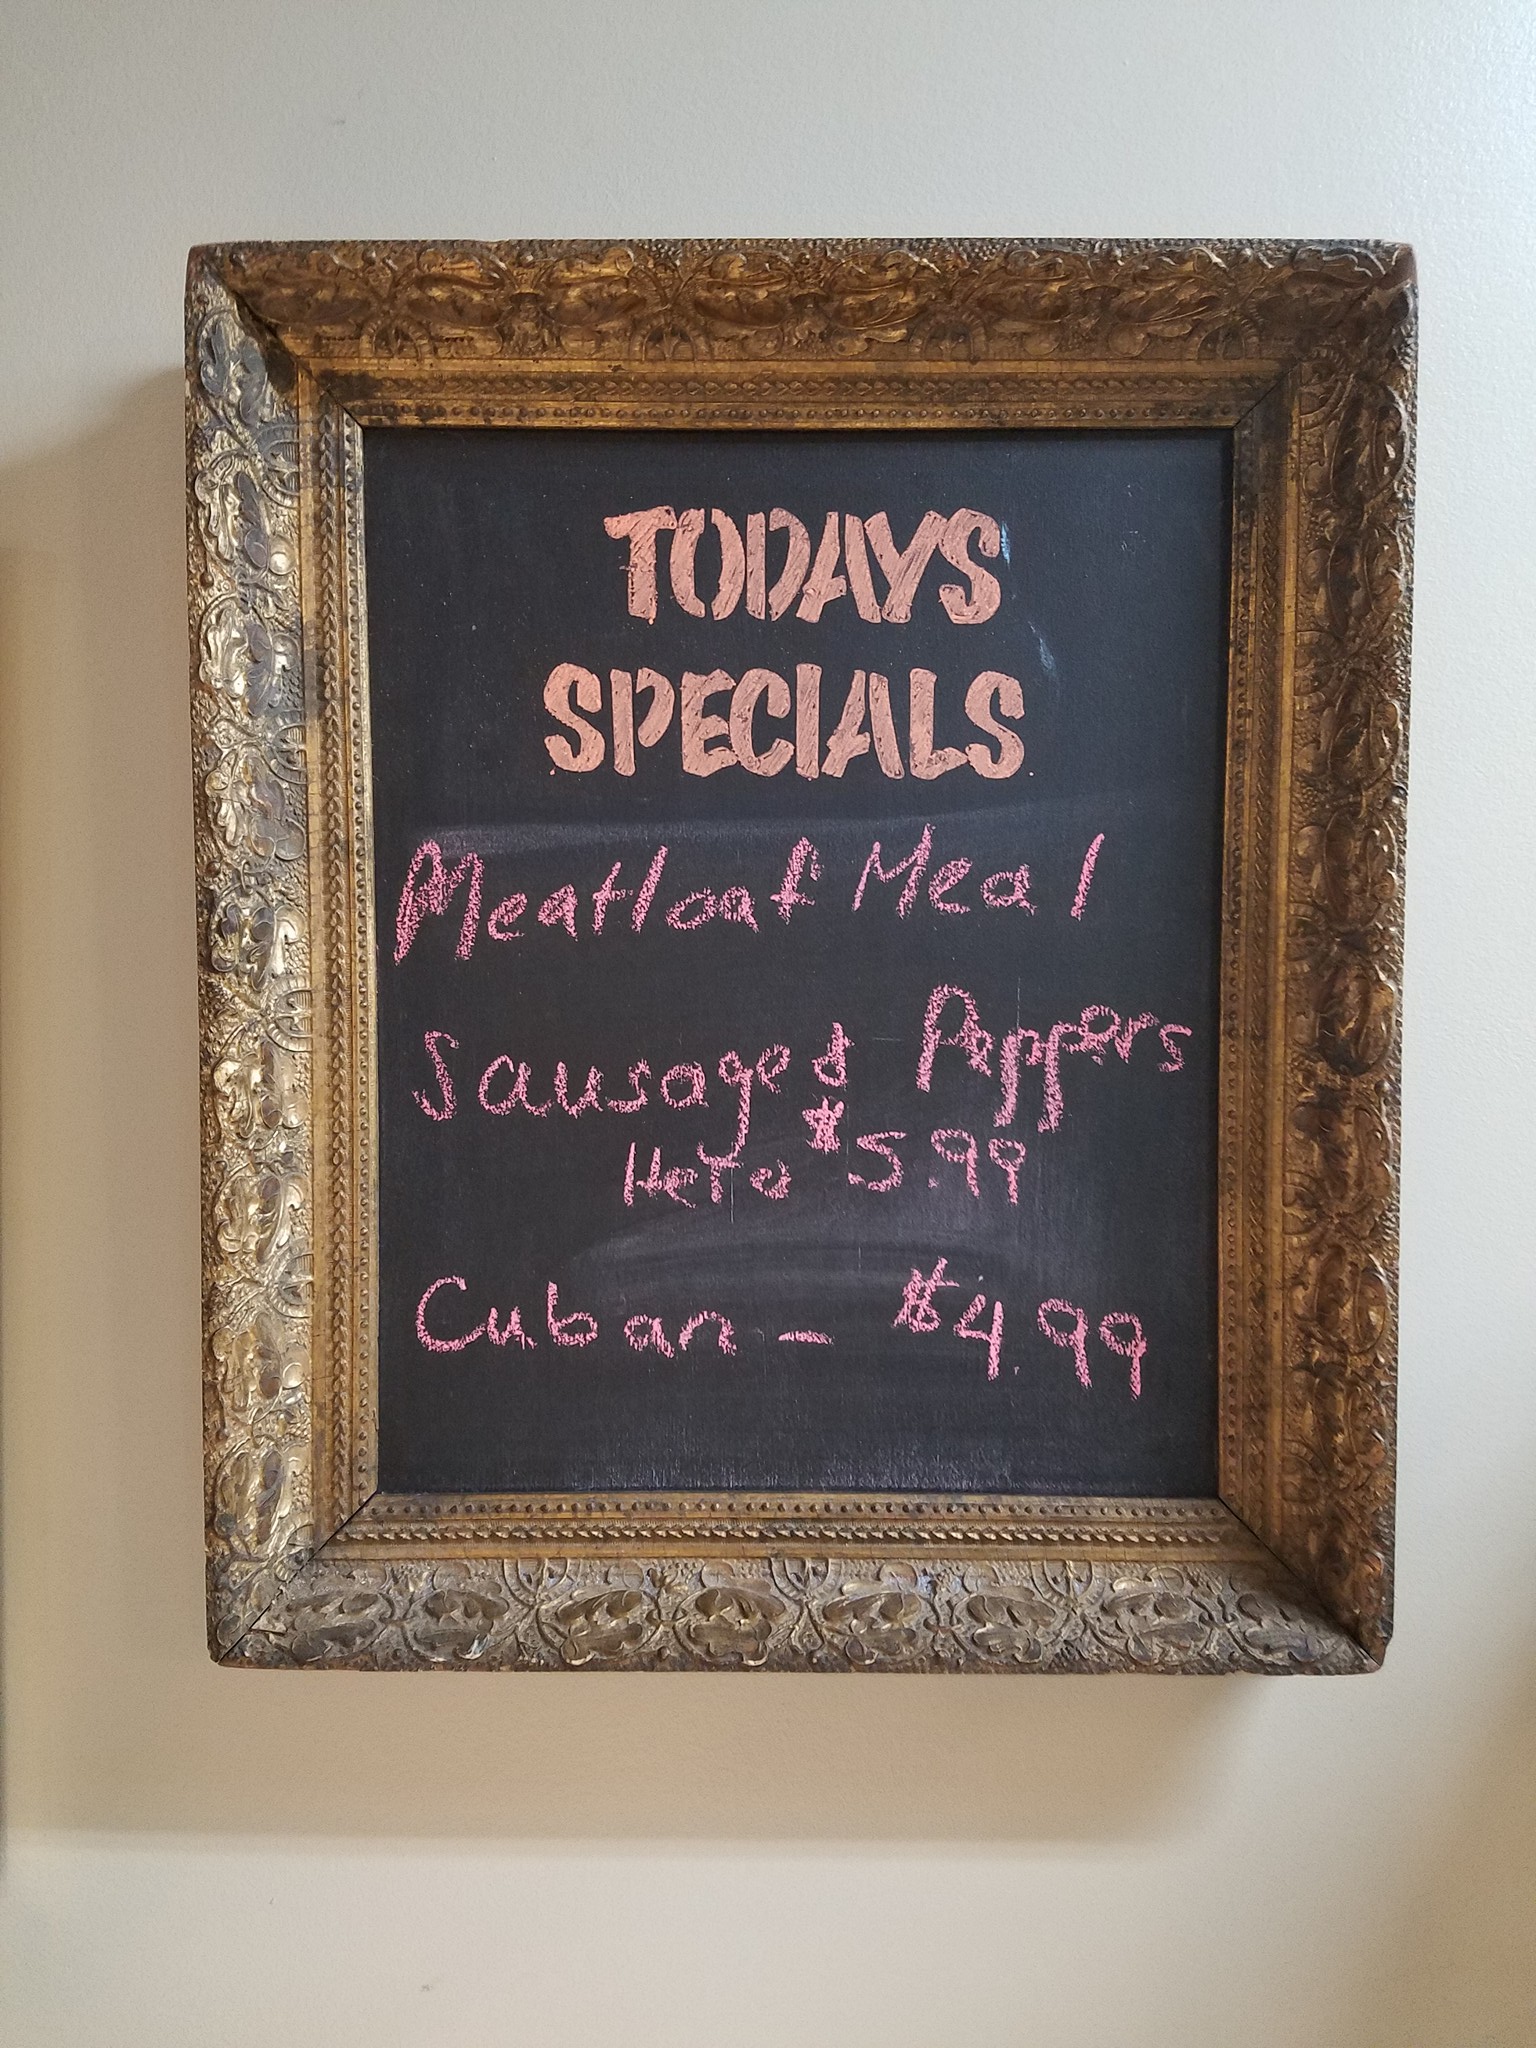 TODAYS
SPECIALS
Meatloaf Meal
Sausage & Peppers
Hero $5.99
Cuban - $4.99